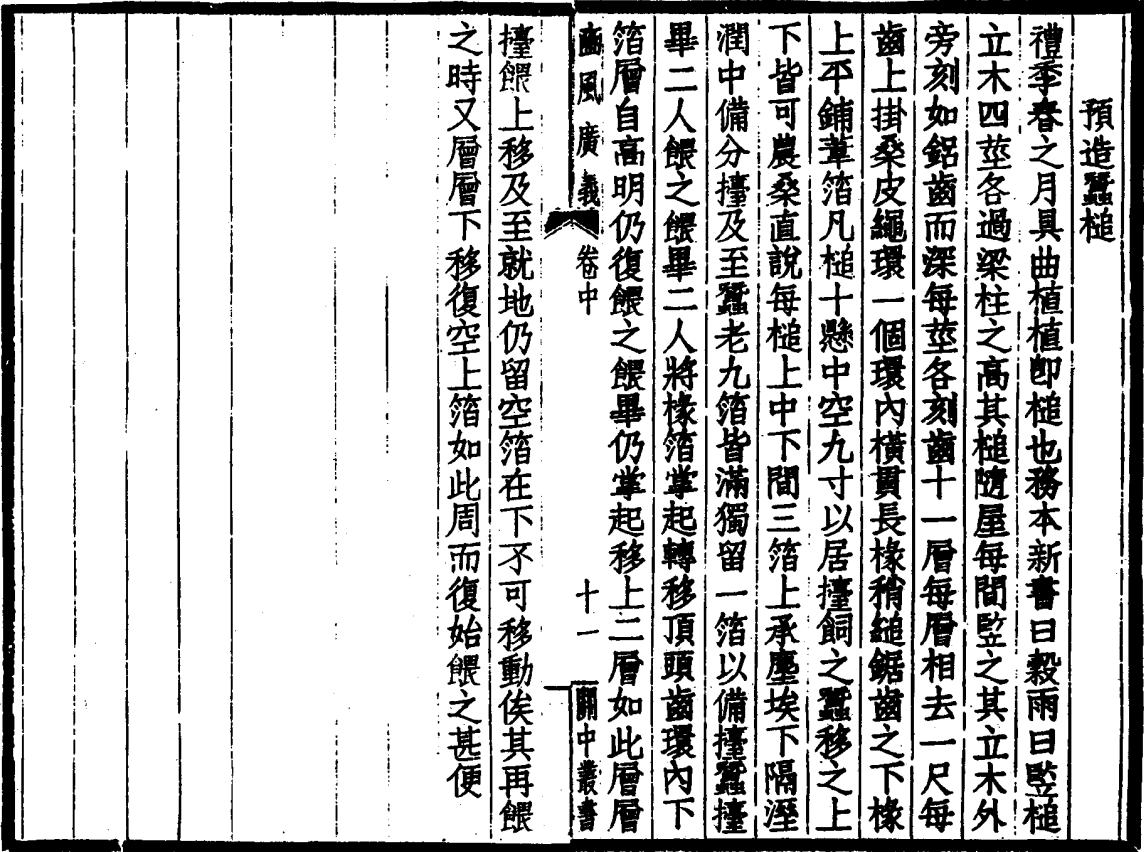 預造蠶槌
禮季春之月具曲植植卽槌也務本新書曰穀雨日竪槌
立木四莖各過梁柱之高其槌隨屋每間竪之其立木外
旁刻如鋸齒而深每莖各刻齒十一層每層相去一尺每
齒上掛桑皮繩環一個環內橫貫長椽稍縋鋸齒之下椽
上平鋪葦箔凡槌十懸中空九寸以居擡飼之蠶移之上
下皆可農桑直說每槌上中下間三箔上承塵埃下隔溼
潤中備分擡及至蠶老九箔皆滿獨留一箔以備擡蠶擡
畢二人餵之餵畢二人將椽箔掌起轉移頂頭齒環內下
箔層自高明仍復餵之餵畢仍掌起移上二層如此層層
豳風廣義 卷中 十一 關中叢書
擡餵上移及至就地仍留空箔在下不可移動俟其再餵
之時又層層下移復空上箔如此周而復始餵之甚便